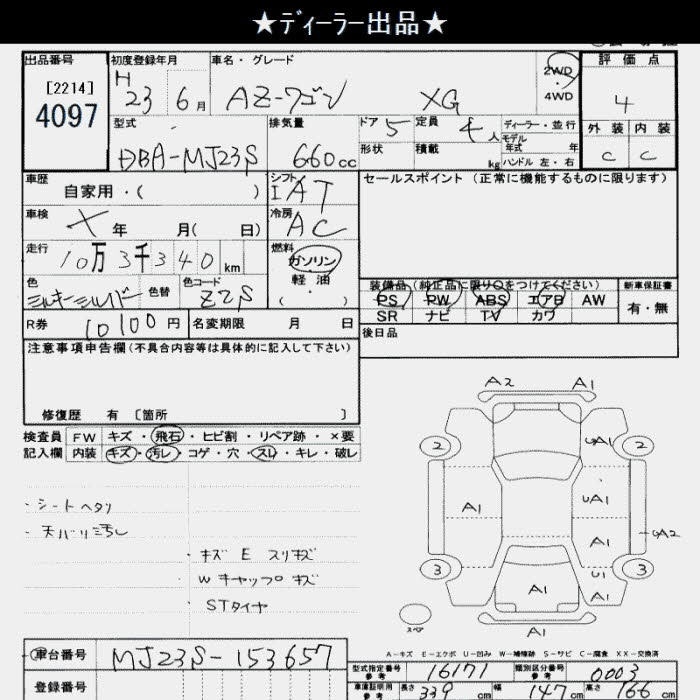 ★ディーラー出品★
出品番号 初度登録年月 車名・グレード 評価点
[2214]
4097
H 23 6月 AZ-ワゴン XG 2WD・4WD 4
型式 排気量 ドア 5 定員 4人 ディーラー・並行 外装 内装
DBA-MJ23S 660cc 形状 積載 kg モデル年式 年 ハンドル 左・右 C C
車歴 自家用・( ) シフト IAT セールスポイント (正常に機能するものに限ります)
車検 × 年 月( 日) 冷房 AC
走行 10万3千340km 燃料 ガソリン 軽油 ( )
色 ミルキーシルバー 色替 色コード Z2S
装備品(純正品に限り○をつけてください) 新車保証書
PS PW ABS エアB AW 有・無
SR ナビ TV カワ
R券 10100円 名変期限 月 日 後日品
注意事項申告欄(不具合内容等は具体的に記入して下さい)
修復歴 有 [箇所 ]
検査員 FW キズ・飛石・ヒビ割・リペア跡・×要
記入欄 内装 キズ・汚レ・コゲ・穴・スレ・キレ・破レ
・シートヘタリ
・天バリ汚レ
・キズ E スリキズ
・W キャップキズ
・STタイヤ
A2 A1
2 uA1 2
A1 uA1
A1 A2
3 U1 3
A1 A1
スペア A1
A-キズ E-エクボ U-凹み W-補修跡 S-サビ C-腐食 XX-交換済
車台番号 MJ23S-153657
型式指定番号 参考 16171 類別区分番号 参考 0003
登録番号
車庫証明用 参考 長さ 339cm 幅 147cm 高さ 166cm